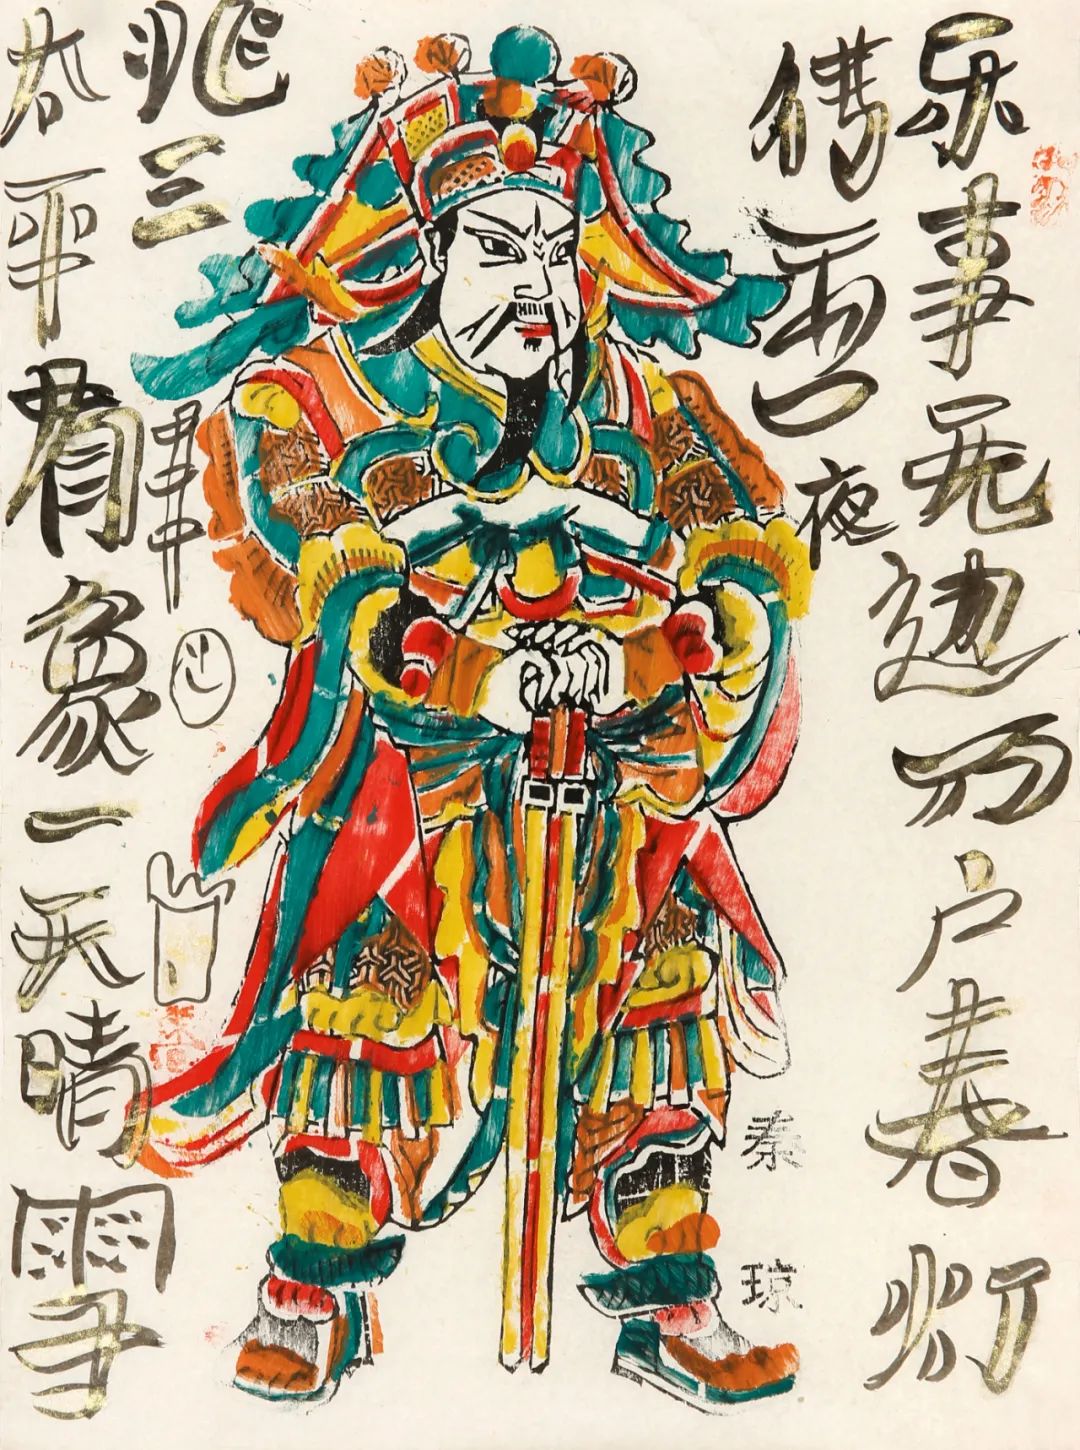 乐事无边万户春灯
傳夜
太平有象一天晴雪
兆三丰
秦琼